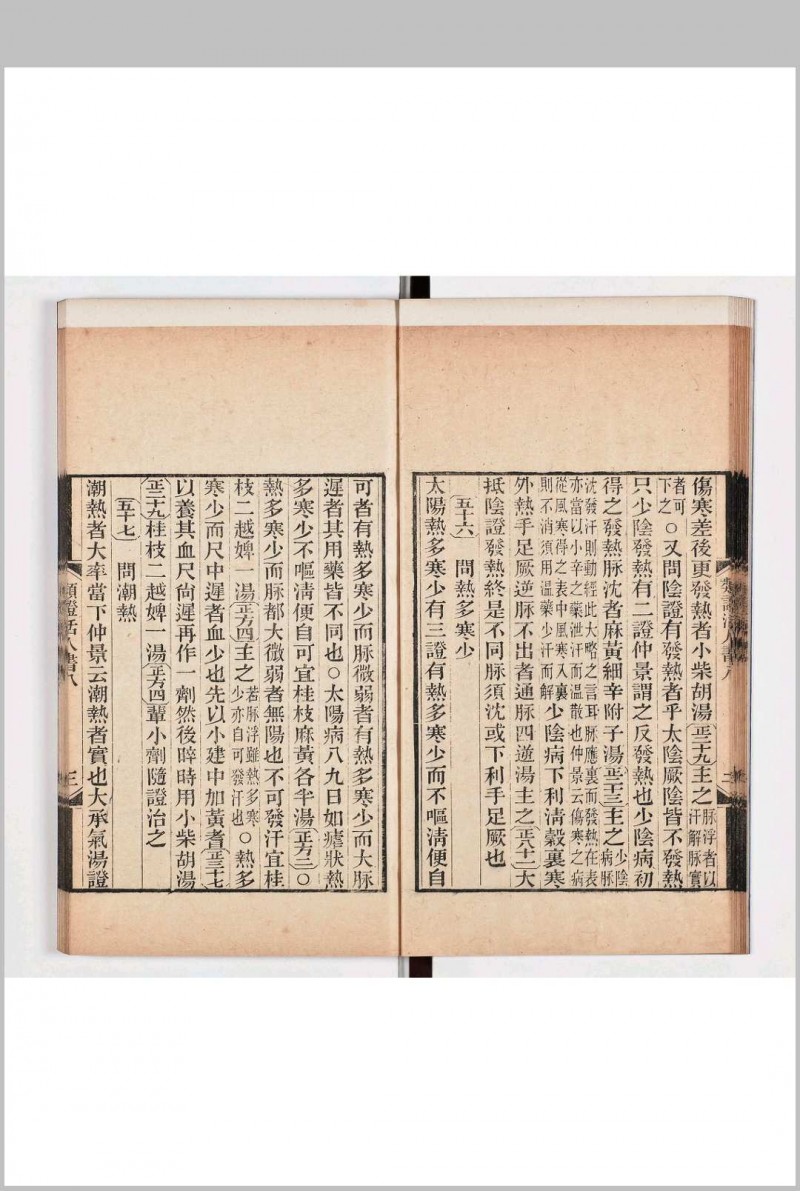 傷寒差後更發熱者小柴胡湯正二十九主之脉浮者以汗解脉實
者可下之○又問陰證有發熱者乎太陰厥陰皆不發熱
只少陰發熱有二證仲景謂之反發熱也少陰病初
得之發熱脉沈者麻黃細辛附子湯正十三主之少陰病脉
沈發汗則動經此大略之言耳脉應裏而發熱在表
亦當以小辛之藥泄汗而溫散也仲景云傷寒之病
從風寒得之表中風寒入裏
則不消須用溫藥少汗而解
少陰病下利淸穀裏寒
外熱手足厥逆脉不出者通脉四逆湯主之正八十一大
抵陰證發熱終是不同脉須沈或下利手足厥也
五十六 問熱多寒少
太陽熱多寒少有三證有熱多寒少而不嘔淸便自
類證活人書八
二
可者有熱多寒少而脉微弱者有熱多寒少而大脉
遲者其用藥皆不同也○太陽病八九日如瘧狀熱
多寒少不嘔淸便自可宜桂枝麻黃各半湯正方二○
熱多寒少而脉都大微弱者無陽也不可發汗宜桂
枝二越婢一湯正方四主之若脉浮雖熱多寒少亦自可發汗也○熱多
寒少而尺中遲者血少也先以小建中加黃耆正三十七
以養其血尺尙遲再作一劑然後晬時用小柴胡湯
正二十九桂枝二越婢一湯正方四輩小劑隨證治之
五十七 問潮熱
潮熱者大率當下仲景云潮熱者實也大承氣湯證
類證活人書八
三